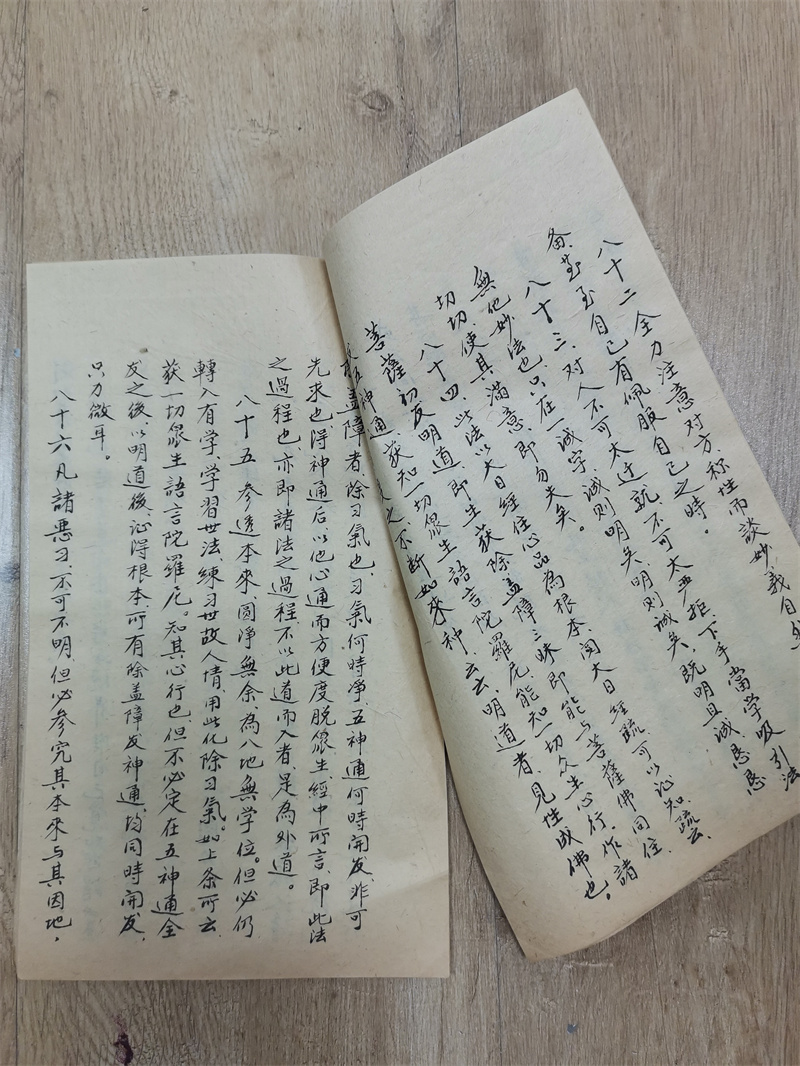 八十二全力注意对方、称性而談妙義自然
备至、至自己有佩服自己之時。
八十三、对人不可太迁就、不可太严拒、下手當学吸引法
無他妙法也、只在一誠字、誠则明矣、明则誠矣、既明且誠、恳恳
切切、使其满意、即勿失矣。
八十四、此法以大日經住心品為根本、閲大日經疏可以沁知、疏云、
菩薩初发明道、即生获除盖障三昧、即能与菩薩佛同住、
五神通、获知一切眾生語言陀羅尼、能知一切众生心行、作諸
之、不断如來种、云云、明道者、見性成佛也。
盖障者、除习氣也、习氣何時净、五神通何時開发、非可
先求也、得神通后以他心通而方便度脱眾生、經中所言、即此法
之過程也、亦即諸法之過程、不以此道而入者、是為外道。
八十五 参透本來、圆净無余、為八地無学位。但必仍
轉入有学、学習世法、練习世故人情、用此化除习氣。如上条所云、
获一切眾生語言陀羅尼。知其心行也、但不必定在五神通全
发之後、以明道後、沁得根本、所有除盖障发神通、均同時開发、
只力微耳。
八十六凡諸惡习、不可不明、但必参究其本來与其因地，